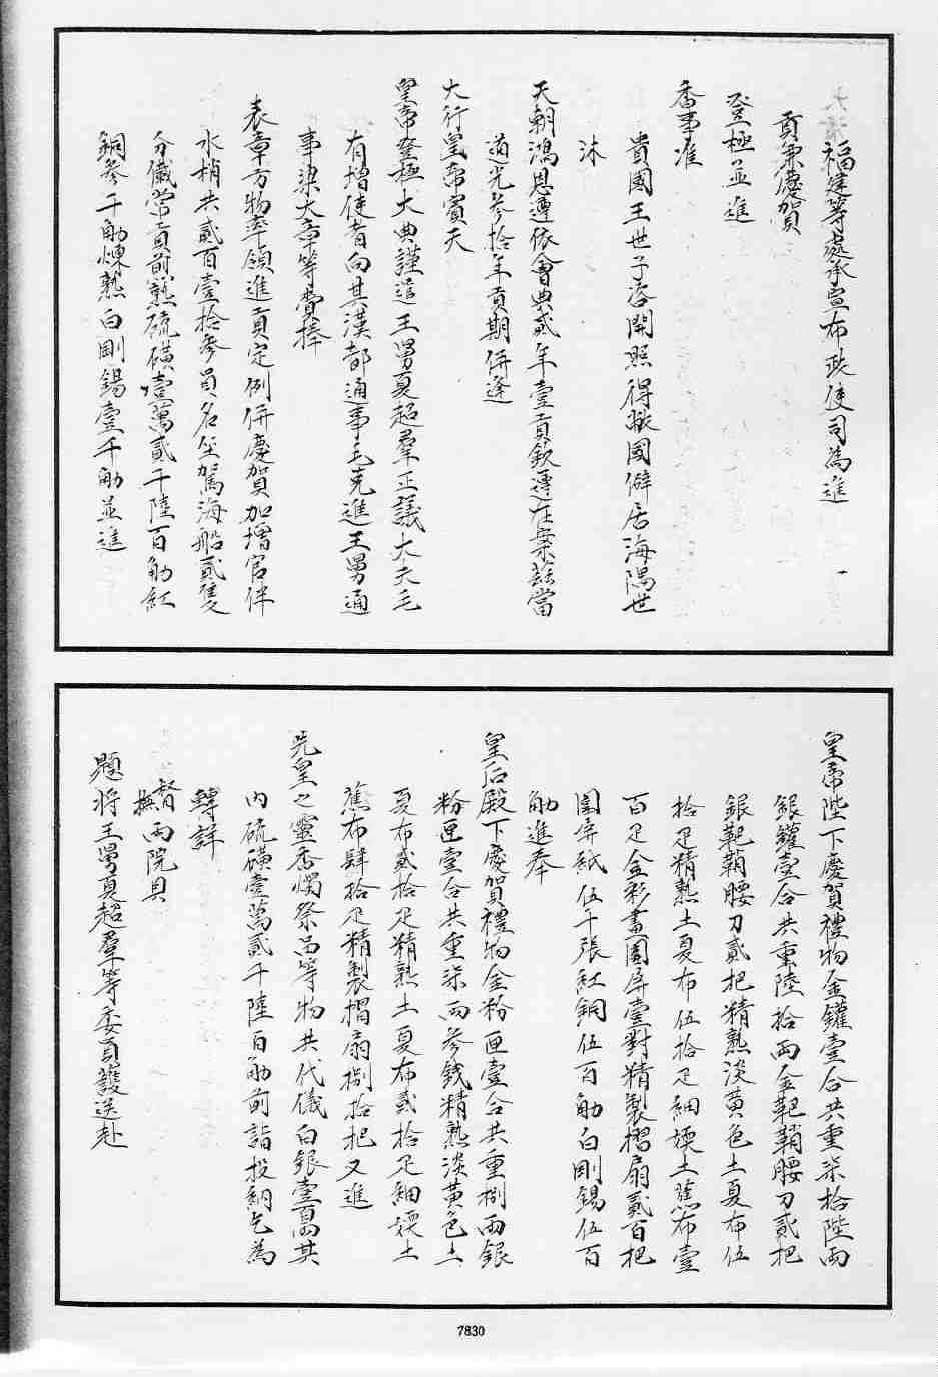 福建等處承宣布政使司為進
貢兼慶賀
登極並進
香事准
貴國王世子咨開照得敝國僻居海隅世
沐
天朝鴻恩遵依會典貳年壹貢欽遵在案茲當
道光參拾年貢期併逢
大行皇帝賓天
皇帝登極大典謹遣王舅夏超羣正議大夫毛
有增使者向其漢都通事毛克進王舅通
事梁大章等賫捧
表章方物率領進貢定例併慶賀加增官伴
水梢共貳百壹拾參員名坐駕海船貳隻
分儎常貢煎熟硫磺壹萬貳千陸百觔紅
銅參千觔煉熟白剛錫壹千觔並進
皇帝陛下慶賀禮物金罐壹合共重柒拾陸兩
銀罐壹合共重陸拾兩金靶鞘腰刀貳把
銀靶鞘腰刀貳把精熟淡黃色土夏布伍
拾疋精熟土夏布伍拾疋細嫩土蕉布壹
百疋金彩畫圍屏壹對精製摺扇貳百把
圍屏紙伍千張紅銅伍百觔白剛錫伍百
觔進奉
皇后殿下慶賀禮物金粉匣壹合共重捌兩銀
粉匣壹合共重柒兩參錢精熟淡黃色土
夏布貳拾疋精熟土夏布貳拾疋細嫩土
蕉布肆拾疋精製摺扇捌拾把又進
先皇之靈香燭祭品等物共代儀白銀壹百兩其
內硫磺壹萬貳千陸百觔前詣投納乞為
轉詳
督撫兩院具
題將王舅夏超羣等委員護送赴
7830